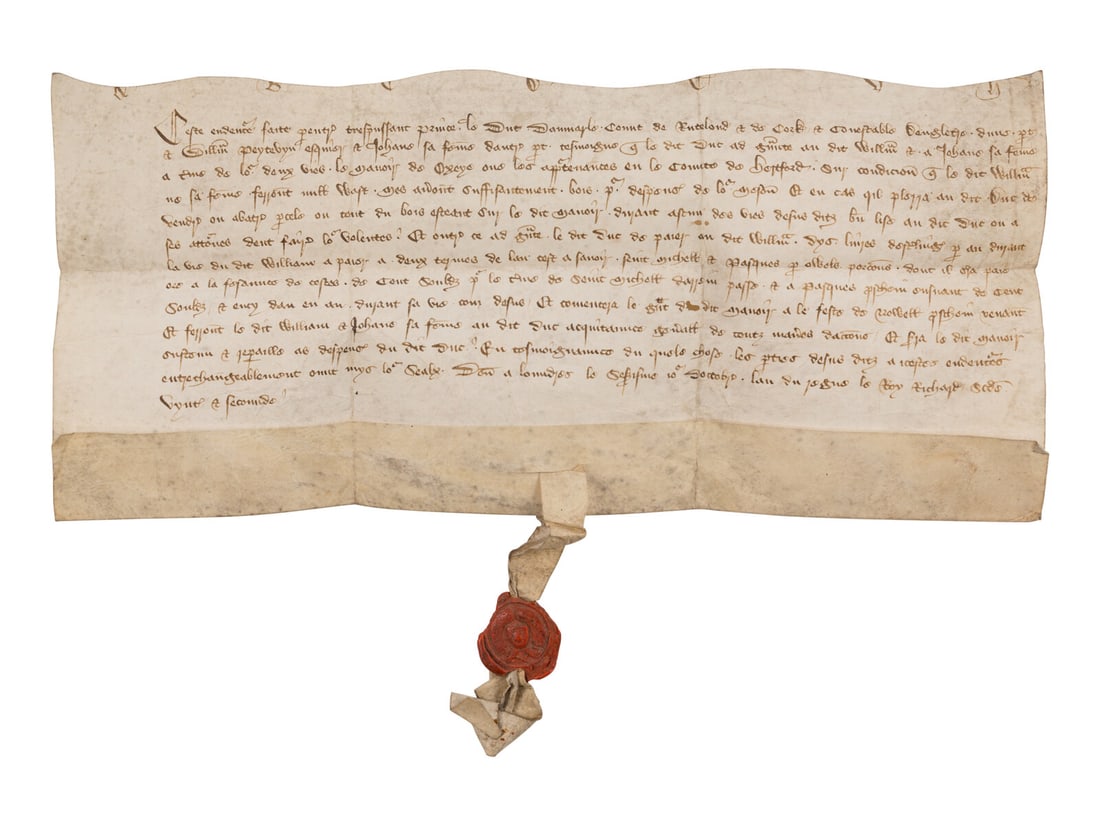 Ceste endent͛e faite p̱entre trespuissant prince le Duc Daumarle Conte de Rutelond & de Cork & Conestable Dengletr̄e dune p̱t
& Will̄m Peytevyn esquier & Johane sa feme dautr̄ p̱t tesmoigne q̄ le dit Duc ad g̃nte au dit Will̄m & a Johane sa feme
a t̃me de lo᷑ deux vies le manoir de ove les app̱tenances en le Comite de Hertford Sur condicion q̄ le dit Will̄m
ne sa feme ferront null Wast mes av͛ont suffisantement bois p᷑ despens de lo᷑ meson Et en cas qil plerra au dit Duc de
vendr̄ ou abatr̄ p̱cele ou tout du bois esteant sur le dit manoir durant ascun des vies desus ditz bn̄ lise au dit Duc ou a
ses attornes dent faire lo᷑ volentes Et outre ce ad g̃nte le dit Duc de paier au dit Will̄m dys livres desterling p̱ an durant
la vie du dit William a paier a deux termes de lan cest a savoir seint Michell & Pasques p̱ owels porcions dont il est paie
ore a la fesannce de cestes de Cent Souldz p᷑ le t̃me de Seint Michell darrein passe & a Pasques p̱schein ensuant de Cent
Souldz & ency dan en an durant sa vie com desus Et comencera le g̃nt du dit manoir a le feste de Nowell p̱schein venant
Et ferront le dit William & Johane sa feme au dit Duc acquitannce gen̄all de toutz man̄es daccions Et s̃ra le dit manoir
susteinu & repaille as despens du dit Duc En tesmoignannce du quele chose les p̱ties desus ditz a icestes endent͛es
entrechangeablement ount mys lo᷑ Sealx Don̄ a loundres le jo᷑ Doctobr̄ lan du regne le Roy Richard Sc̄de
vynt & seconde